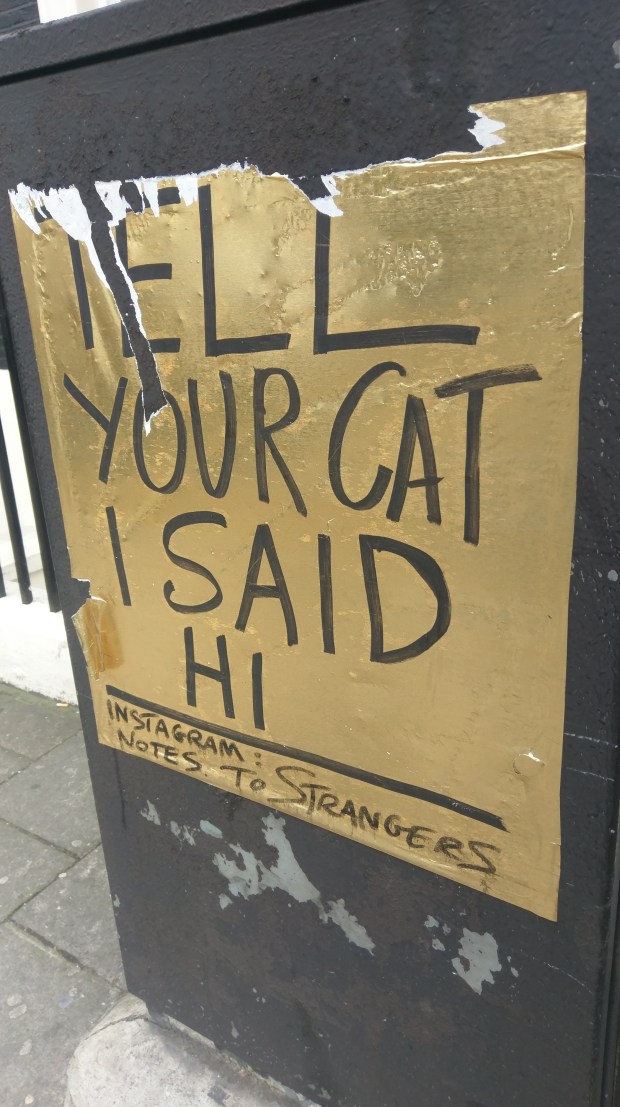 TELL
YOUR CAT
I SAID
HI
INSTAGRAM:
NOTES TO STRANGERS